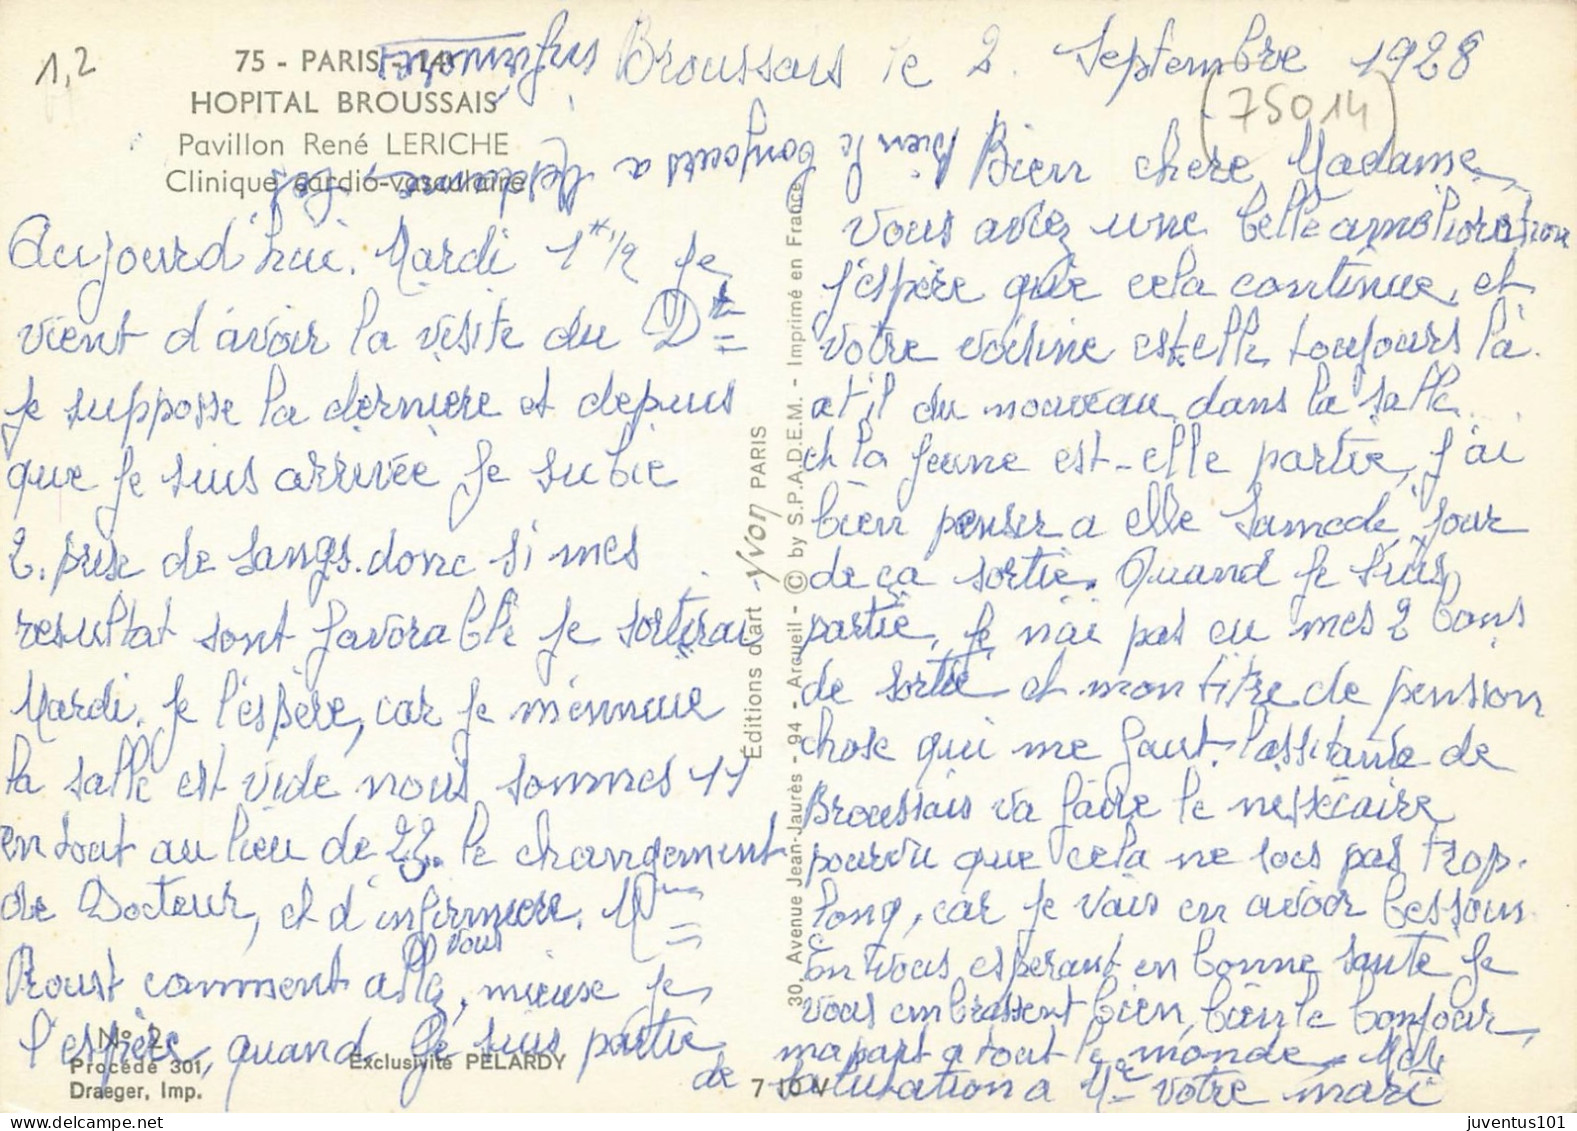 1,2
75 - PARIS - 14e
HOPITAL BROUSSAIS
Pavillon René LERICHE
Clinique cardio-vasculaire
Broussais le 2. Septembre 1928
(75014)
Bien le bonjours a
Aujourd'hui. Mardi 1* 1/2 je
vient d'avoir la visite du Dr
je supposse la derniere et depuis
que je suis arrivée je subie
2. prise de sangs. donc si mes
resultat sont favorable je sortirai
Mardi. je l'espère, car je m'ennuie
la salle est vide nous sommes 11
en tout au lieu de 22. le changement
de Docteur, et d'infirmiere. Mme
Proust comment allez vous, mieuse je
l'espère, quand je suis partie
Bien chere Madame
vous aviez une belle amélioration
j'espère que cela continue, et
votre voisine est-elle toujours là.
at il du nouveau dans la salle
et la jeune est-elle partie, j'ai
bien penser a elle Samedi, jour
de ça sortie. Quand je suis
partie, je n'ai pas eu mes 2 bons
de sortie et mon titre de pension
chose qui me faut. l'assitante de
Broussais va faire le nessécaire
pourvu que cela ne sois pas trop.
long, car je vais en avoir bessoin
En vous esperant en bonne sante je
vous embrassent bien, bien le bonjour,
ma part a tout le monde,
de salutation a Mr votre mari
Éditions d'art Yvon PARIS
30, Avenue Jean-Jaurès - 94 - Arcueil - © by S.P.A.D.E.M. - Imprimé en France
No 2
Procédé 301
Draeger, Imp.
Exclusivité PELARDY
7 10 V
juventus101